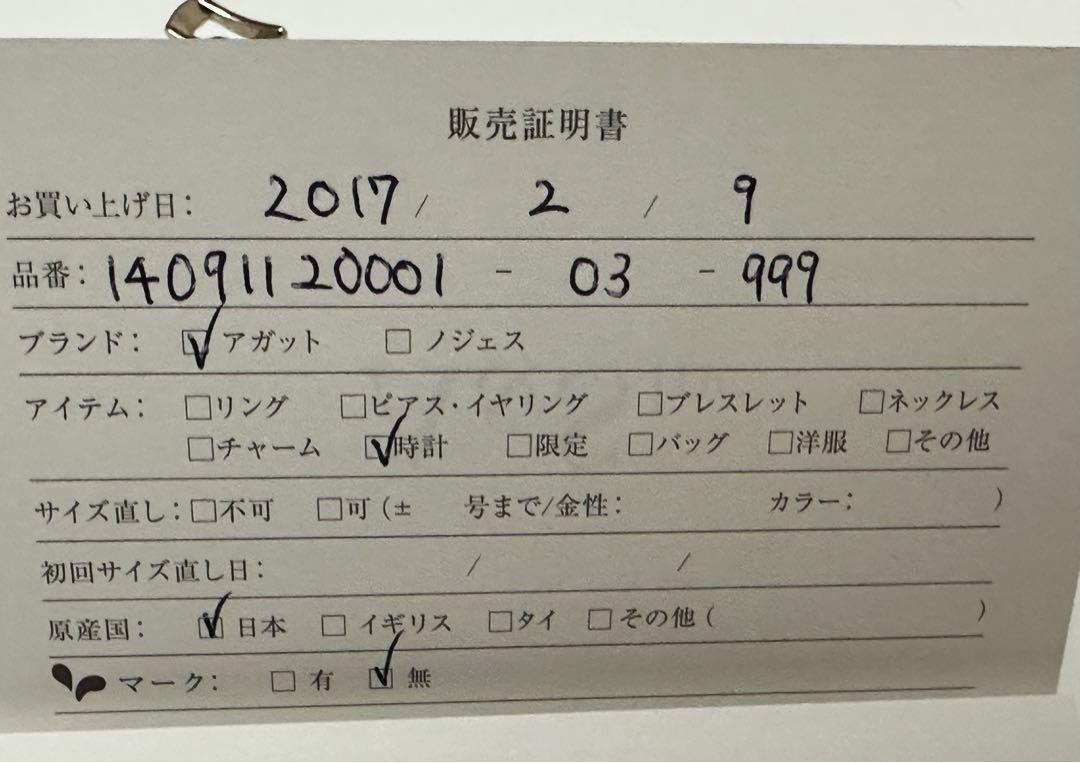 販売証明書
お買い上げ日: 2017 / 2 / 9
品番: 14091120001 - 03 - 999
ブランド: ☑ アガット □ ノジェス
アイテム: □リング □ピアス・イヤリング □ブレスレット □ネックレス
□チャーム ☑時計 □限定 □バッグ □洋服 □その他
サイズ直し: □不可 □可 (± 号まで/金性: カラー: )
初回サイズ直し日: / /
原産国: ☑ 日本 □ イギリス □タイ □その他 ( )
マーク: □ 有 ☑ 無